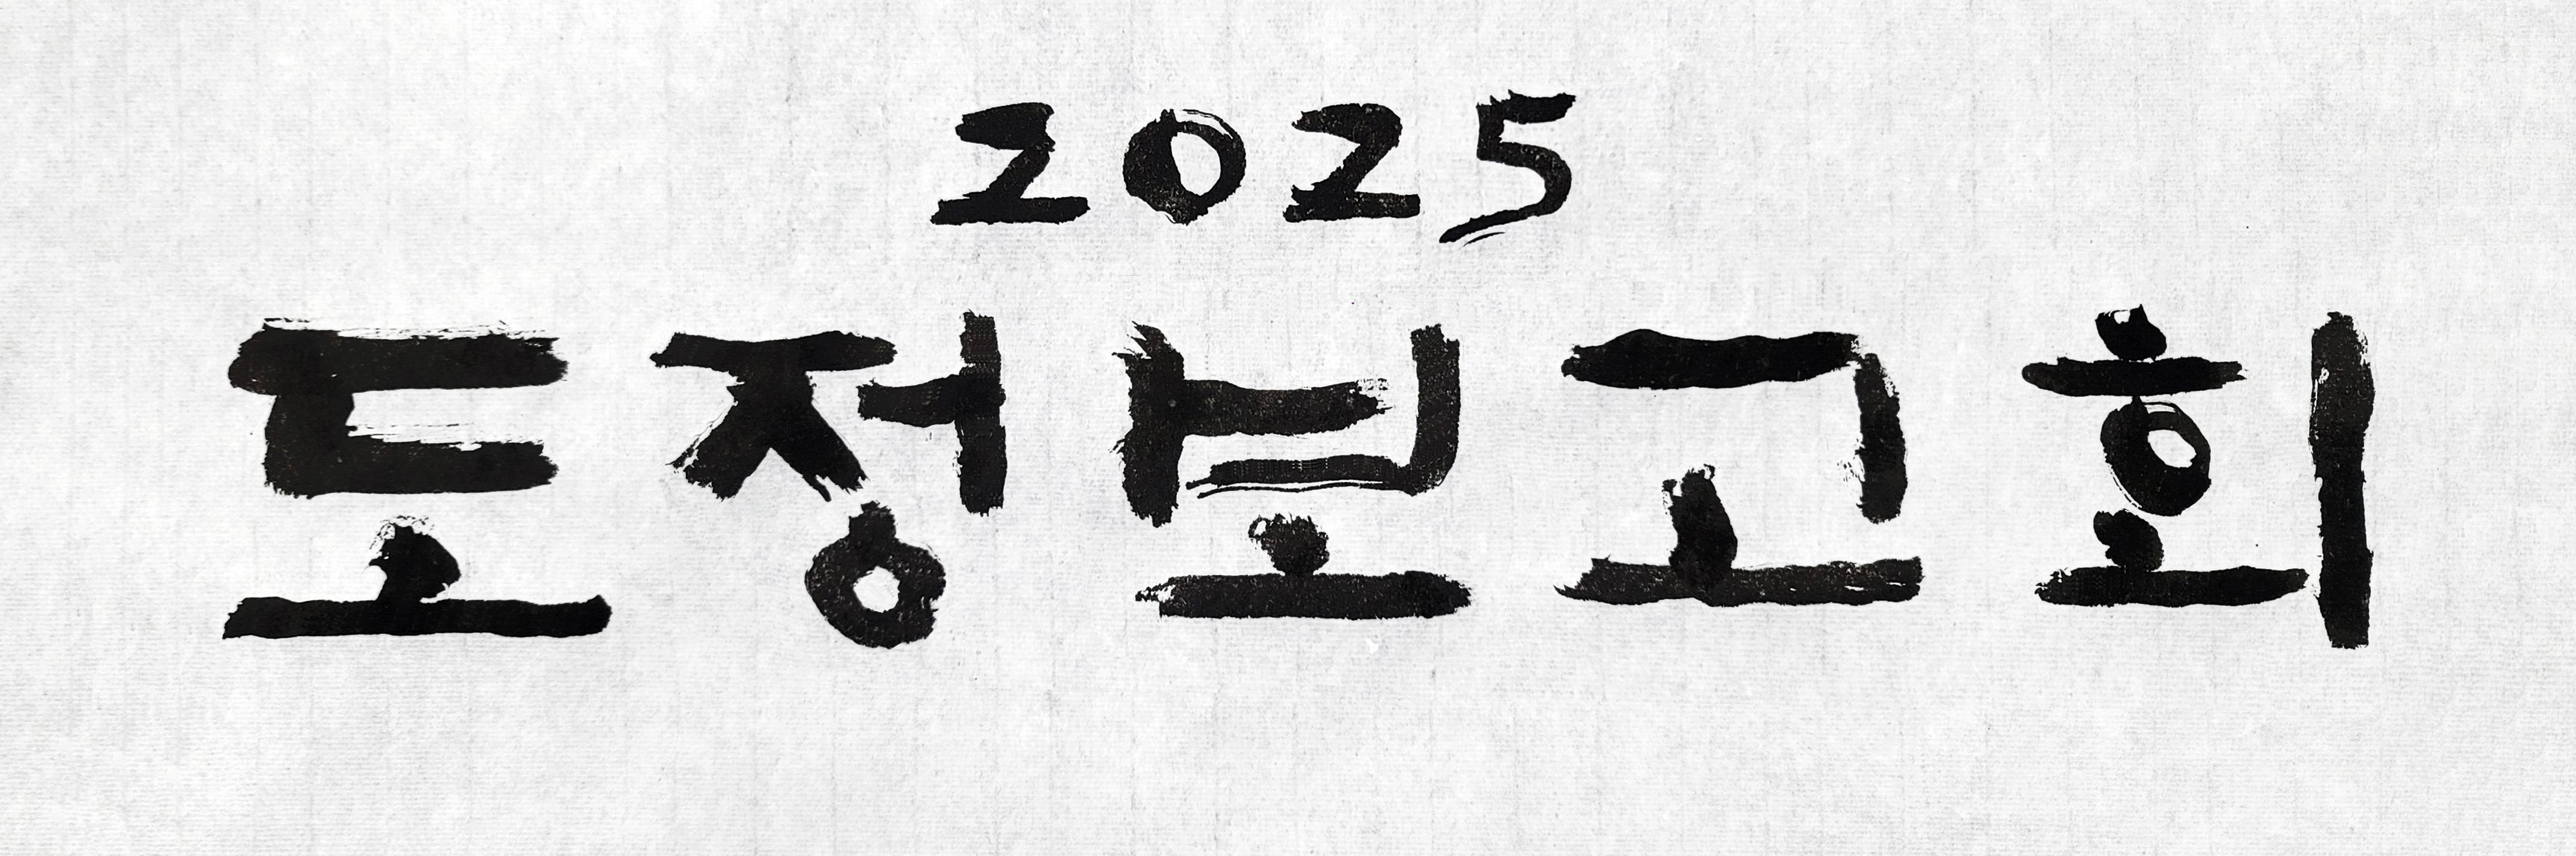 2025
도정보고회